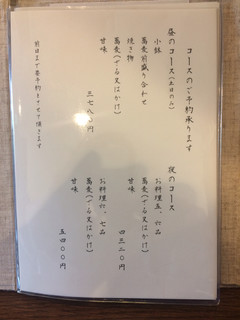 コースのご予約承ります
昼のコース(土日のみ)
小鉢
蕎麦前盛り合わせ
焼き物
蕎麦(ざる又はかけ)
甘味
三七八〇円
夜のコース
お料理五、六品
蕎麦(ざる又はかけ)
甘味
四三二〇円
お料理六、七品
蕎麦(ざる又はかけ)
甘味
五四〇〇円
前日まで要予約とさせて頂きます